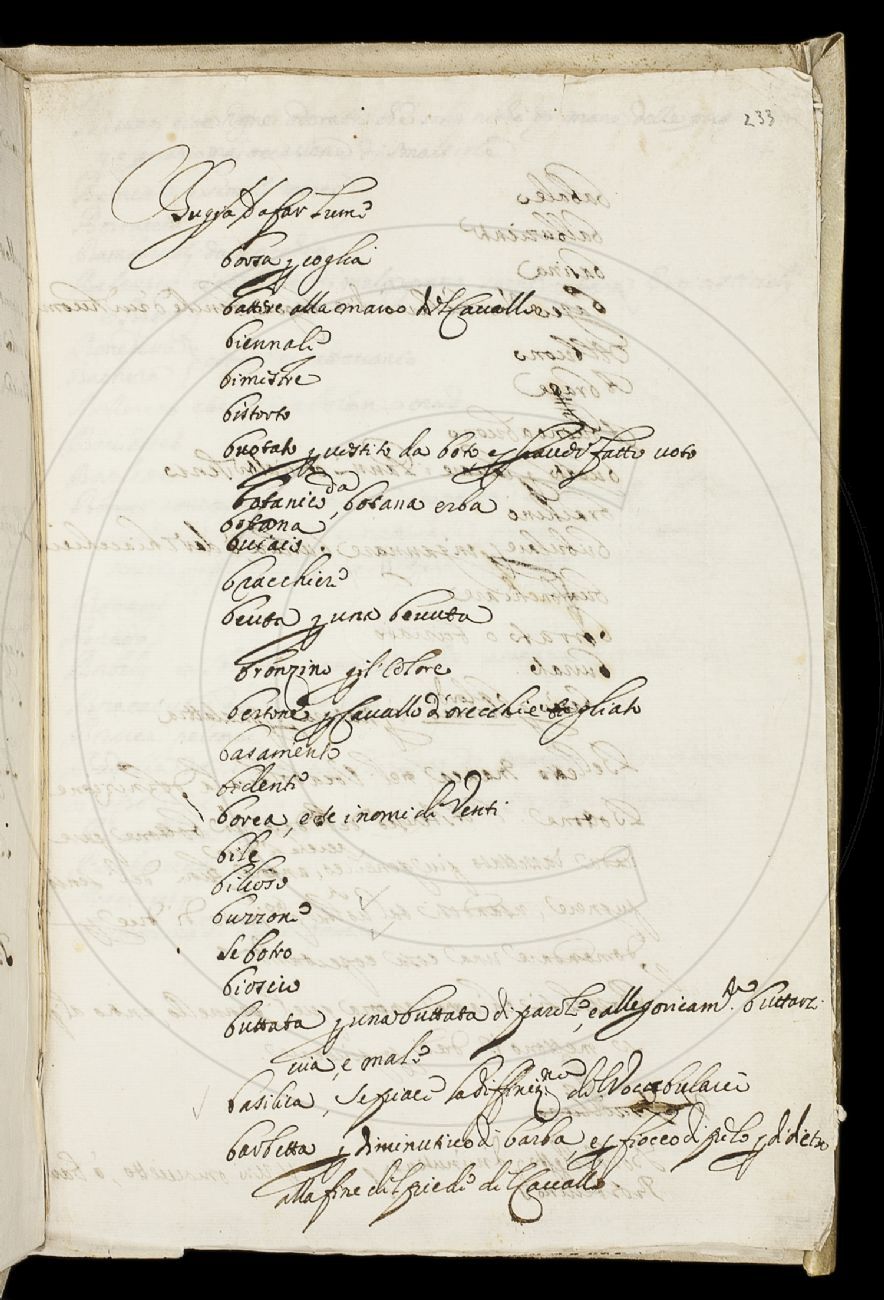 233
Bugia da far lume
borsa p coglia
battere alla mano del Cavallo
biennale
bimestre
bistorto
botato p vestito da boto e p haver fatto voto
botanico da botana erba
botana
buciaio
bracchiere
beuta p una beuuta
bronzino p il Colore
bertone p Cavallo d'orecchie tagliato
basamento
bidente
borea, e se i nomi di Venti
bile
bilioso
burrone
se botro
bioscio
buttata p una buttata di parole, e allegoricam.te buttarsi
via, e male
basilica, se piace la diffiniz.ne del Vocabulario
barbetta p diminutivo di barba, e p fiocco di pelo p di dietro
alla fine del piede del Cavallo